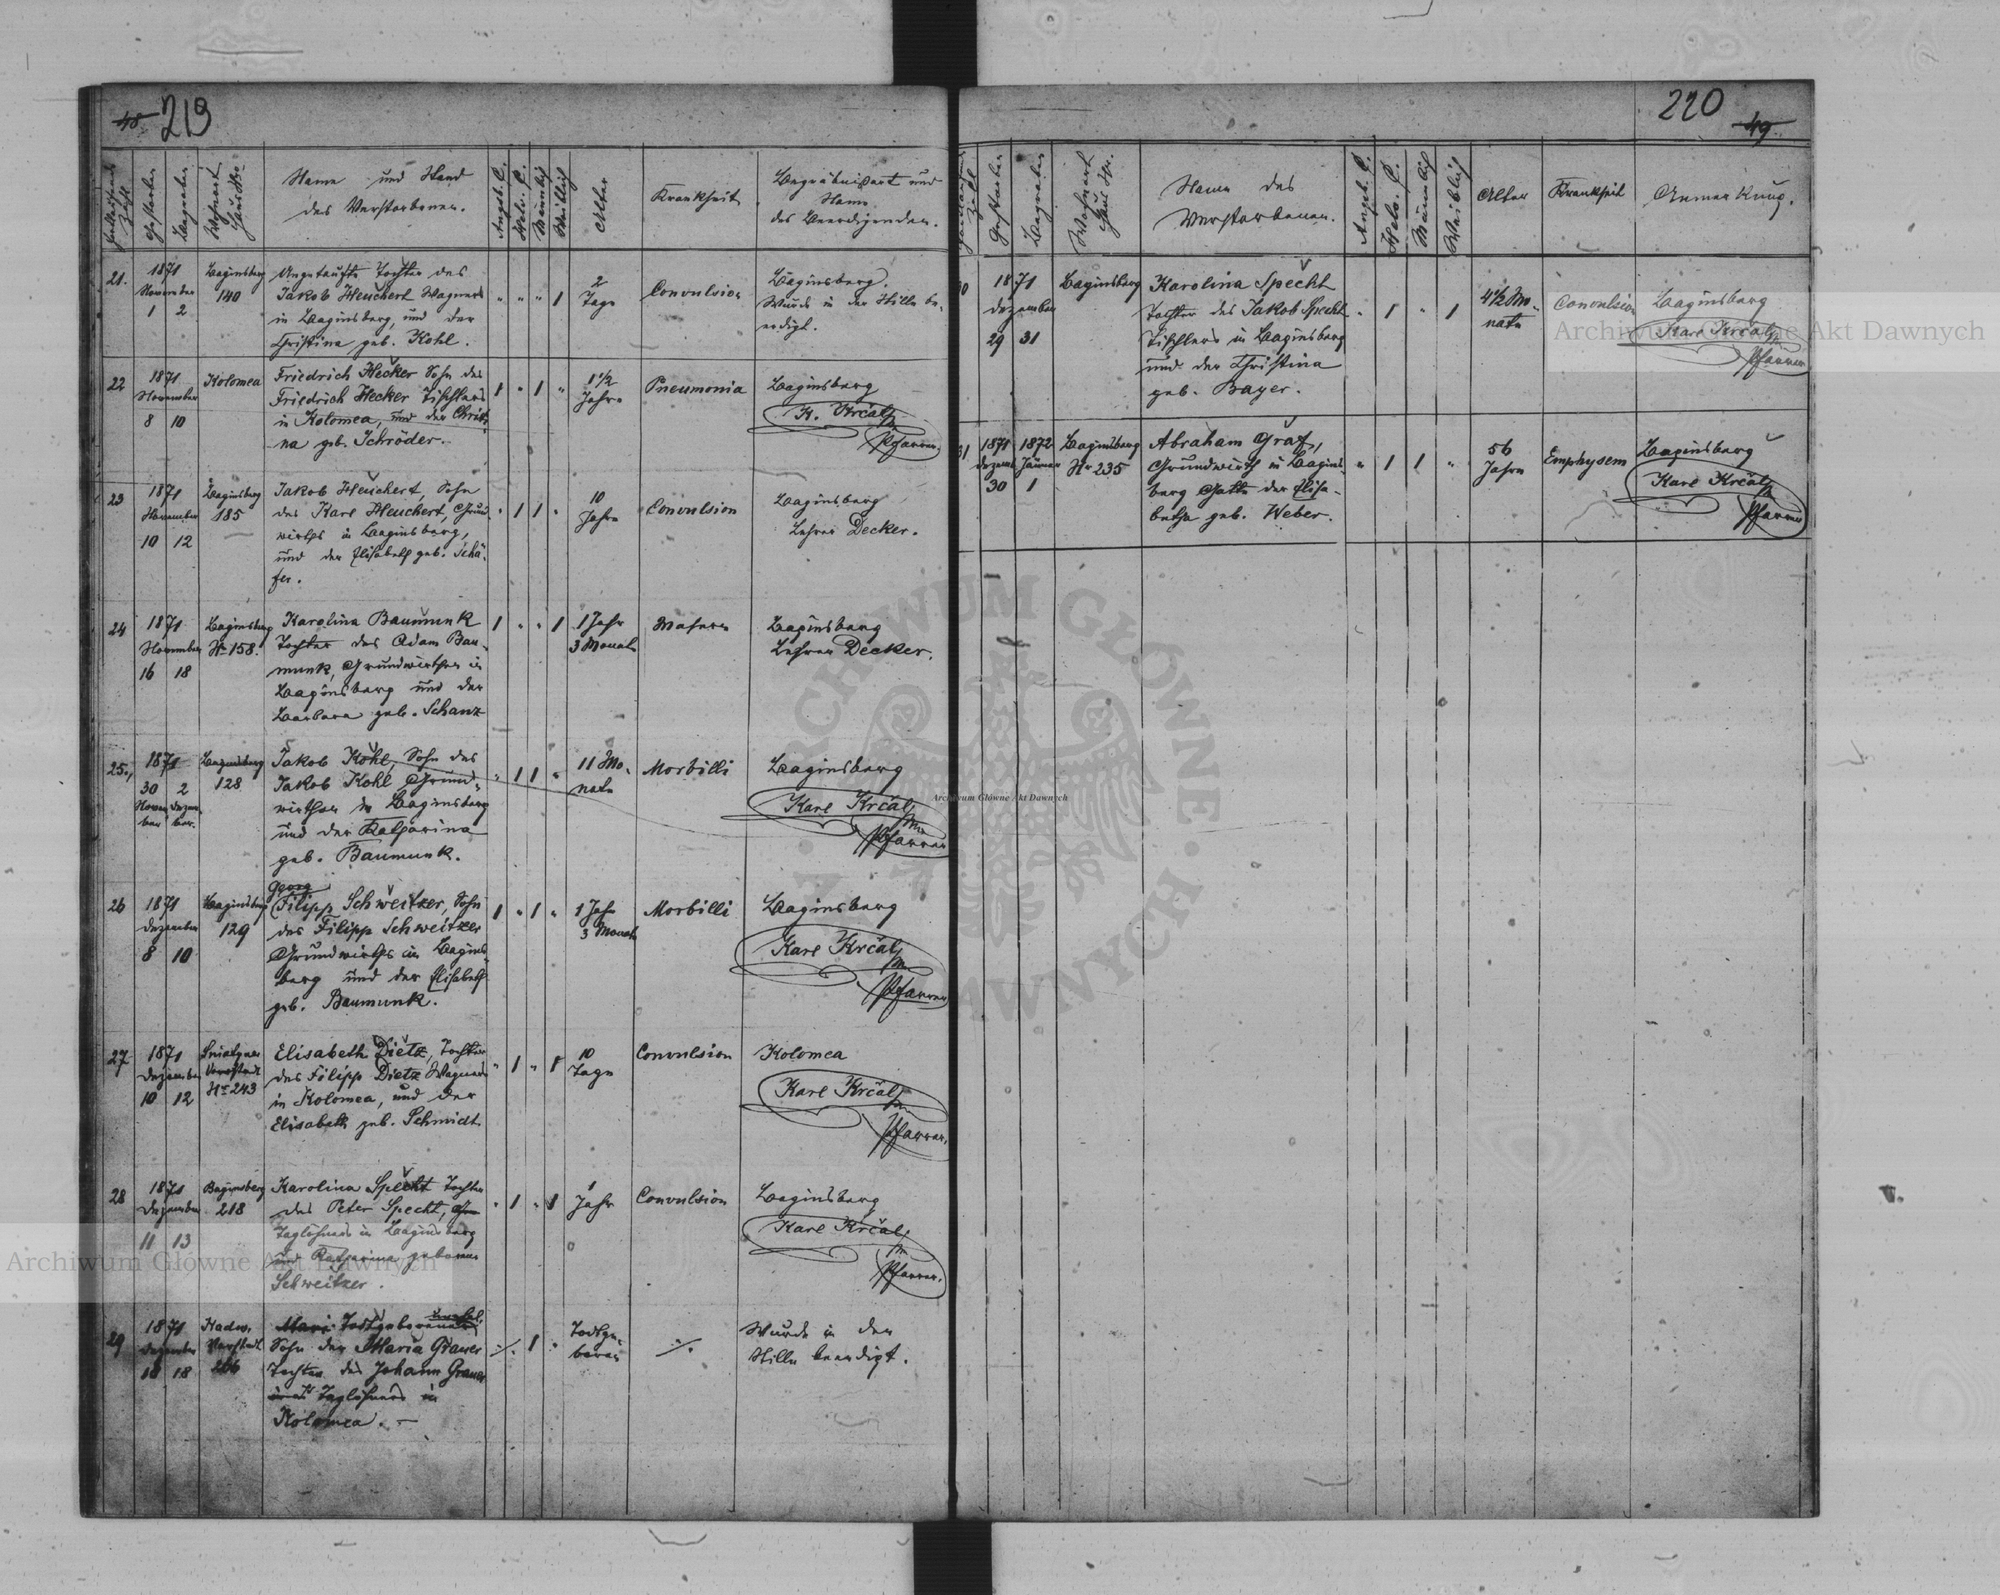 48 219
Laufende Zahl
Gestorben
Begraben
Wohnort Haus Nr.
Name und Stand
des Verstorbenen.
Augsb. C.
Helv. C.
Männlich
Weiblich
Alter
Krankheit
Begräbnißort und
Name
des Beerdigenden.
21.
1871
November
1 2
Baginsberg
140
Ungetaufte Tochter des
Jakob Heuchert Wagners
in Baginsberg, und der
Christina geb. Kohl.
" " " 1
2
Tage
Convulsion
Baginsberg.
Wurde in der Stille be-
erdigt.
22
1871
November
8 10
Kolomea
Friedrich Hecker Sohn des
Friedrich Hecker Tischlers
in Kolomea, und der Christi-
na geb. Schröder.
1 " 1 "
1 1/2
Jahre
Pneumonia
Baginsberg
K. Krčal
Pfarrer
23
1871
November
10 12
Baginsberg
185
Jakob Heuchert, Sohn
des Karl Heuchert, Grund-
wirths in Baginsberg,
und der Elisabeth geb. Schä-
fer.
" 1 1 "
10
Jahre
Convulsion
Baginsberg
Lehrer Decker.
24
1871
November
16 18
Baginsberg
Nr 158.
Karolina Baumunk
Tochter des Adam Bau-
munk, Grundwirthes in
Baginsberg und der
Barbara geb. Schanz
1 " " 1
1 Jahr
3 Monate
Masern
Baginsberg
Lehrer Decker.
25.,
1871
30 2
Novem- Dezem-
ber ber.
Baginsberg
128
Jakob Kohl, Sohn des
Jakob Kohl Grund-
wirthes in Baginsberg
und der Katharina
geb. Baumunk.
" 1 1 "
11 Mo-
nate
Morbilli
Baginsberg
Karl Krčal
Pfarrer
26
1871
Dezember
8 10
Baginsberg
129
Georg
Filipp Schweitzer, Sohn
des Filipp Schweitzer
Grundwirths in Bagins-
berg und der Elisabeth
geb. Baumunk.
1 " 1 "
1 Jahr
3 Monate
Morbilli
Baginsberg
Karl Krčal
Pfarrer
27
1871
Dezember
10 12
Sniatyner
Vorstadt
Nr 243
Elisabeth Dietz, Tochter
des Filipp Dietz Wagners
in Kolomea, und der
Elisabeth geb. Schmidt.
" 1 " 1
10
Tage
Convulsion
Kolomea
Karl Krčal
Pfarrer.
28
1871
Dezember
11 13
Baginsberg
218
Karolina Specht Tochter
des Peter Specht,
Taglöhners in Baginsberg
und Katharina geborene
Schweitzer.
" 1 " 1
1
Jahr
Convulsion
Baginsberg
Karl Krčal
Pfarrer.
29
1871
Dezember
18
Vorstadt
266
Todtgeborener
Sohn der Maria Grauer
Tochter des Johann Grauer
Taglöhners in
Kolomea. —
·/· 1 "
Todtge-
boren
·/·
Wurde in der
Stille beerdigt.
220 49
Laufende Zahl
Gestorben
Begraben
Wohnort Haus Nr.
Name des
Verstorbenen.
Augsb. C.
Helv. C.
Männlich
Weiblich
Alter
Krankheit
Anmerkung.
30
1871
Dezember
29 31
Baginsberg
Karolina Specht
Tochter des Jakob Specht
Tischlers in Baginsberg
und der Christina
geb. Bayer.
" 1 " 1
4 1/2 Mo-
nate
Convulsion
Baginsberg
Karl Krčal
Pfarrer
31
1871 1872
Dezemb. Jänner
30 1
Baginsberg
Nr 235
Abraham Graf,
Grundwirth in Bagins-
berg Gatte der Elisa-
betha geb. Weber.
" 1 1 "
56
Jahre
Emphysem
Baginsberg
Karl Krčal
Pfarrer
Archiwum Główne Akt Dawnych
Archiwum Główne Akt Dawnych
Archiwum Główne Akt Dawnych
ARCHIWUM GŁÓWNE AKT DAWNYCH